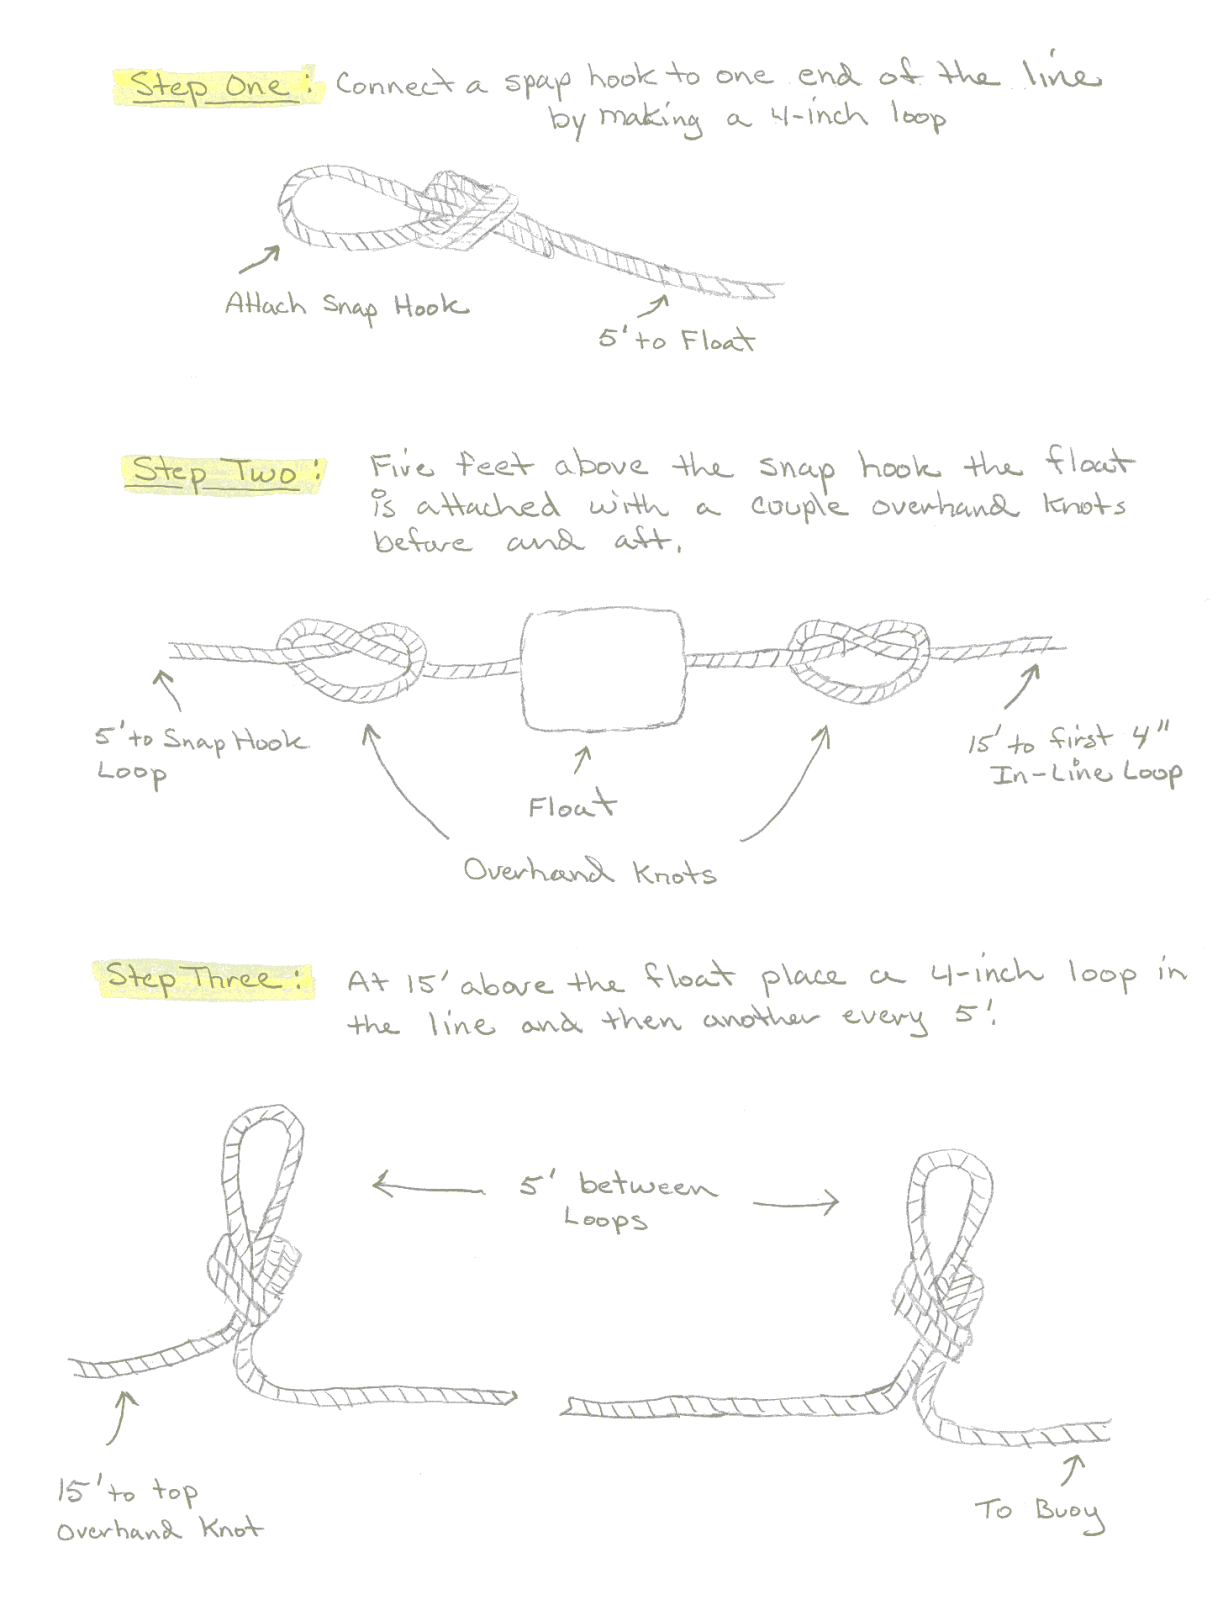 Step One: Connect a spap hook to one end of the line
by making a 4-inch loop
Attach Snap Hook
5' to Float
Step Two: Five feet above the snap hook the float
is attached with a couple overhand knots
before and aft.
5' to Snap Hook
Loop
Float
15' to first 4"
In-Line Loop
Overhand Knots
Step Three: At 15' above the float place a 4-inch loop in
the line and then another every 5'.
5' between
Loops
15' to top
Overhand Knot
To Buoy